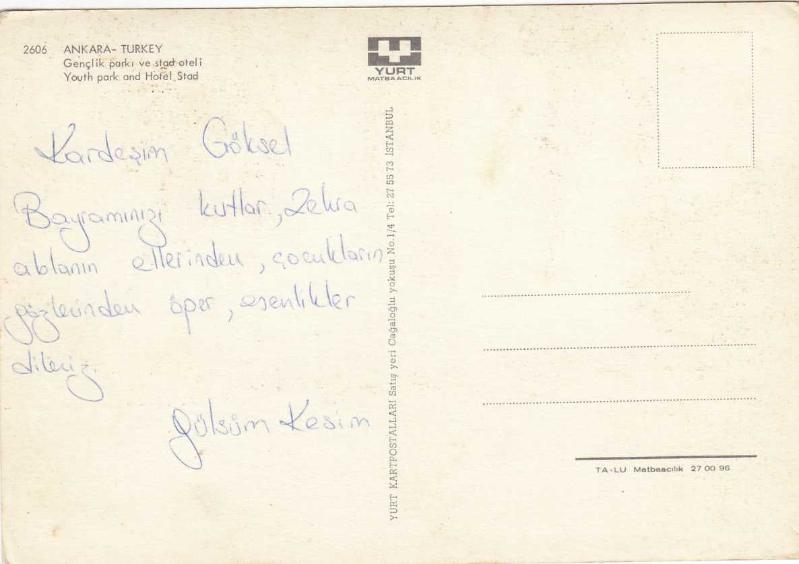 2606 ANKARA - TURKEY
Gençlik parkı ve stad oteli
Youth park and Hotel Stad
YURT
MATBAACILIK
Kardeşim Göksel
Bayramınızı kutlar, Zehra
ablanın ellerinden, çocukların
gözlerinden öper, esenlikler
dileriz.
Gülsüm Kesim
YURT KARTPOSTALLARI Satış yeri Cağaloğlu yokuşu No.1/4 Tel: 27 55 73 İSTANBUL
TA-LU Matbaacılık 27 00 96